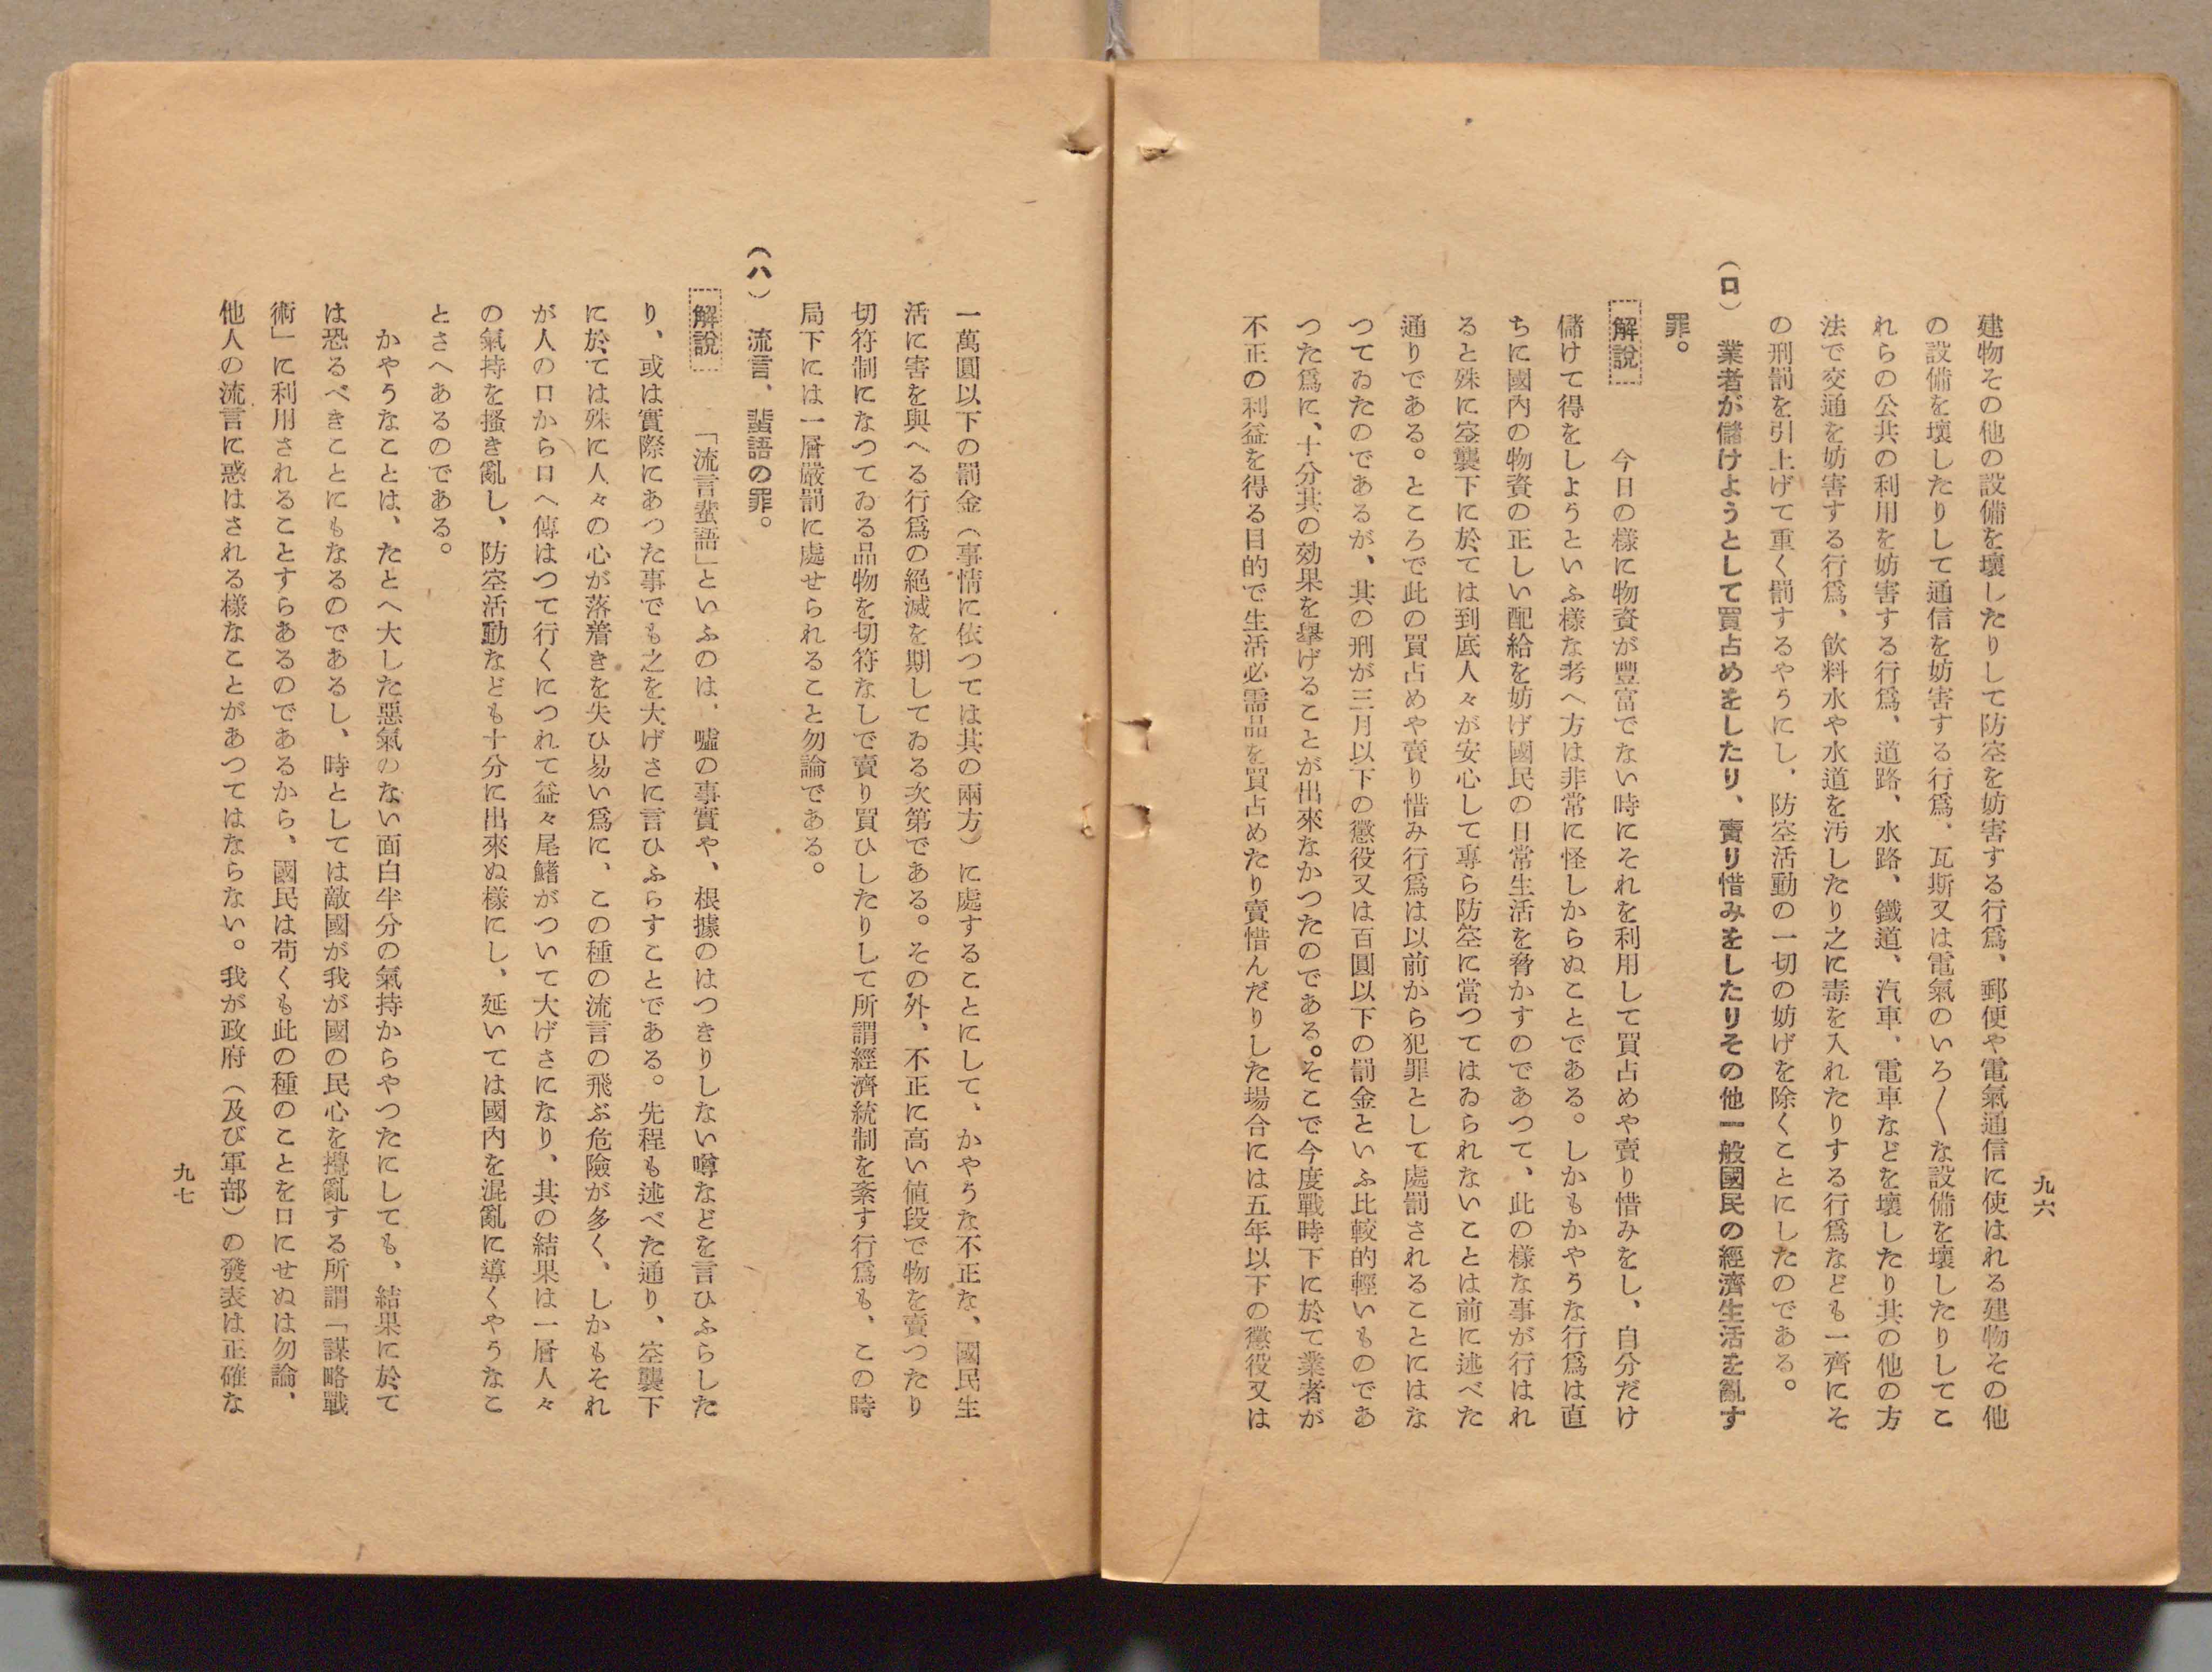 九六
建物その他の設備を壞したりして防空を妨害する行爲、郵便や電氣通信に使はれる建物その他
の設備を壞したりして通信を妨害する行爲、瓦斯又は電氣のいろ〱な設備を壞したりしてこ
れらの公共の利用を妨害する行爲、道路、水路、鐵道、汽車、電車などを壞したり其の他の方
法で交通を妨害する行爲、飮料水や水道を汚したり之に毒を入れたりする行爲なども一齊にそ
の刑罰を引上げて重く罰するやうにし、防空活動の一切の妨げを除くことにしたのである。
(ロ) 業者が儲けようとして買占めをしたり、賣り惜みをしたりその他一般國民の經濟生活を亂す
罪。
解說 今日の樣に物資が豐富でない時にそれを利用して買占めや賣り惜みをし、自分だけ
儲けて得をしようといふ樣な考へ方は非常に怪しからぬことである。しかもかやうな行爲は直
ちに國內の物資の正しい配給を妨げ國民の日常生活を脅かすのであつて、此の樣な事が行はれ
ると殊に空襲下に於ては到底人々が安心して專ら防空に當つてはゐられないことは前に述べた
通りである。ところで此の買占めや賣り惜み行爲は以前から犯罪として處罰されることにはな
つてゐたのであるが、其の刑が三月以下の懲役又は百圓以下の罰金といふ比較的輕いものであ
つた爲に、十分其の効果を擧げることが出來なかつたのである。そこで今度戰時下に於て業者が
不正の利益を得る目的で生活必需品を買占めたり賣惜んだりした場合には五年以下の懲役又は
一萬圓以下の罰金(事情に依つては其の兩方)に處することにして、かやうな不正な、國民生
活に害を與へる行爲の絕滅を期してゐる次第である。その外、不正に高い値段で物を賣つたり
切符制になつてゐる品物を切符なしで賣り買ひしたりして所謂經濟統制を紊す行爲も、この時
局下には一層嚴罰に處せられること勿論である。
(ハ) 流言、蜚語の罪。
解說 「流言蜚語」といふのは、噓の事實や、根據のはつきりしない噂などを言ひふらした
り、或は實際にあつた事でも之を大げさに言ひふらすことである。先程も述べた通り、空襲下
に於ては殊に人々の心が落着きを失ひ易い爲に、この種の流言の飛ぶ危險が多く、しかもそれ
が人の口から口へ傳はつて行くにつれて益々尾鰭がついて大げさになり、其の結果は一層人々
の氣持を搔き亂し、防空活動なども十分に出來ぬ樣にし、延いては國內を混亂に導くやうなこ
とさへあるのである。
かやうなことは、たとへ大した惡氣のない面白半分の氣持からやつたにしても、結果に於て
は恐るべきことにもなるのであるし、時としては敵國が我が國の民心を攪亂する所謂「謀略戰
術」に利用されることすらあるのであるから、國民は苟くも此の種のことを口にせぬは勿論、
他人の流言に惑はされる樣なことがあつてはならない。我が政府(及び軍部)の發表は正確な
九七